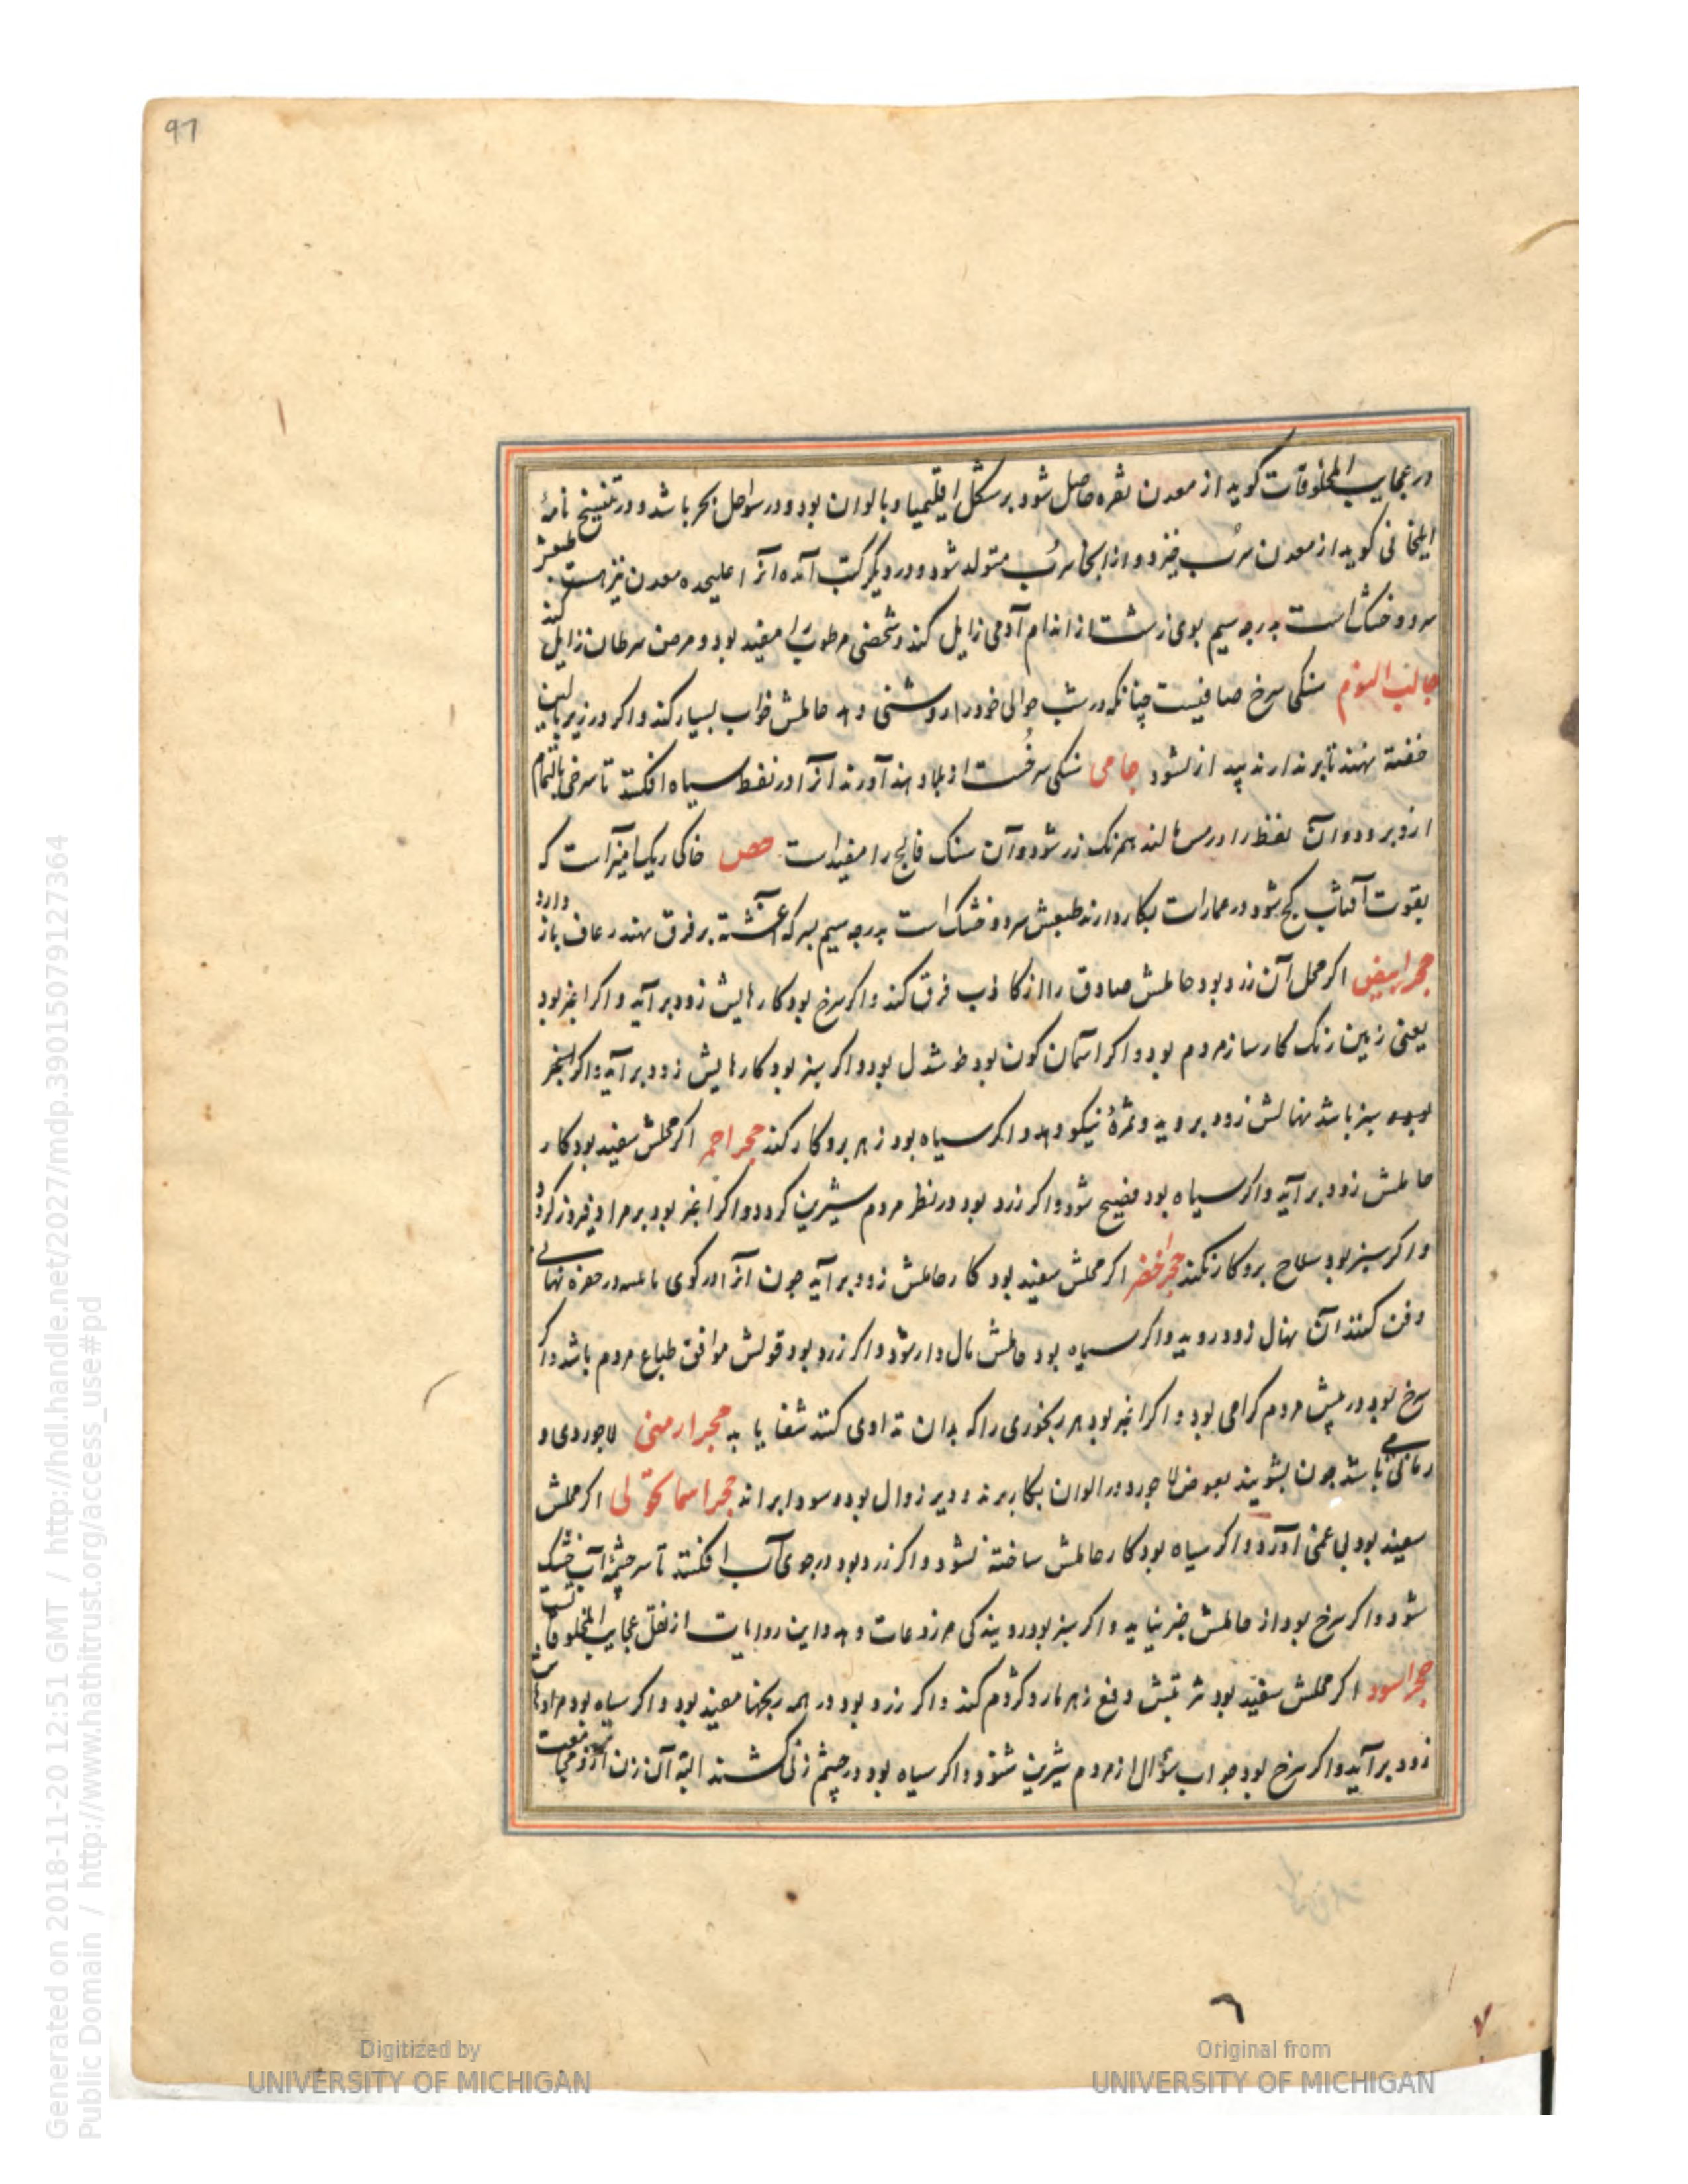 97
در عجایب المخلوقات کوید از معدن نقره حاصل شود بر شکل اقلیمیا و بالوان بود و در سواحل بحر باشد و در تنسیخ نامهٔ
ایلخانی کوید از معدن سرُب خیزد و از انجا سرُب متولد شود و در دیکر کتب آمده آنرا علیحده معدن نیز هست طبعش
سرد و خشک است بدرجه سیم بوی زشت از اندام آدمی زایل کند و شخصی مرطوب را مفید بود و مرض سرطان زایل کند
جالب النوم سنکی سرخ صافیست چنانکه در شب حوالی خود را روشنی دهد حاملش خواب بسیار کند و اکر در زیر بالین
خفته نهند تا برندارند بیدار نشود جامی سنکی سرخست از بلاد هند آورند آنرا در نفط سیاه افکنند تا سرخی بالتمام
ازو برود و آن نفط را در مس مالند همرنک زر شود و آن سنک فالج را مفید است جص خاکی ریک امیز است که
بقوت آفتاب کج شود در عمارات بکار دارند طبعش سرد و خشک است بدرجه سیم بسرکه آغشته بر فرق نهند رعاف باز دارد
حجر ابیض اکر محل آن زرد بود حاملش صادق را از کاذب فرق کند و اکر سرخ بود کارهایش زود برآید و اکر اغبر بود
یعنی زمین رنک کارساز مردم بود و اکر اسمان کون بود خوشدل بود و اکر سبز بود کارهایش زود برآید و اکر
بود سبز باشد نهالش زود بروید و ثمرهٔ نیکو دهد و اکر سیاه بود زهر برو کار کند حجر احمر اکر محلش سفید بود کار
حاملش زود برآید و اکر سیاه بود فصیح شود و اکر زرد بود در نظر مردم شیرین کردد و اکر اغبر بود بر مراد فیروز کردد
و اکر سبز بود سلاح برو کار نکند حجر اخضر اکر محلش سفید بود کار حاملش زود برآید جون انرا در کوی در حفره نهالی
دفن کنند آن نهال زود روید و اکر سیاه بود حاملش مال دار شود و اکر زرد بود قولش موافق طباع مردم باشد و اکر
سرخ بود در پیش مردم کرامی بود و اکر اغبر بود هر رنجوری را که بدان تداوی کنند شفا یابد حجر ارمنی لاجوردی و
رمانی باشد جون بشویند بعوض لاجورد در الوان بکار برند و دیر زوال بود و سودا براند حجر اسمانکونی اکر محلش
سفید بود بی غمی آورد و اکر سیاه بود کار حاملش ساخته نشود و اکر زرد بود در جوی آب افکنند تا سر چشمه آب خشک
شود و اکر سرخ بود از حاملش خیر نیاید و اکر سبز بود رویندکی مزروعات دهد و این روایات از نقل عجایب المخلوقات است
حجر اسود اکر محلش سفید بود شربتش دفع زهر مار و کژدم کند و اکر زرد بود در همه رنجها مفید بود و اکر سیاه بود مرادها
زود برآید و اکر سرخ بود جواب سؤال از مردم شیرین شنود و اکر سیاه بود در چشم زنی کشند البته آن زن
Digitized by
UNIVERSITY OF MICHIGAN
Original from
UNIVERSITY OF MICHIGAN
Generated on 2018-11-20 12:51 GMT / http://hdl.handle.net/2027/mdp.39015079127364
Public Domain / http://www.hathitrust.org/access_use#pd